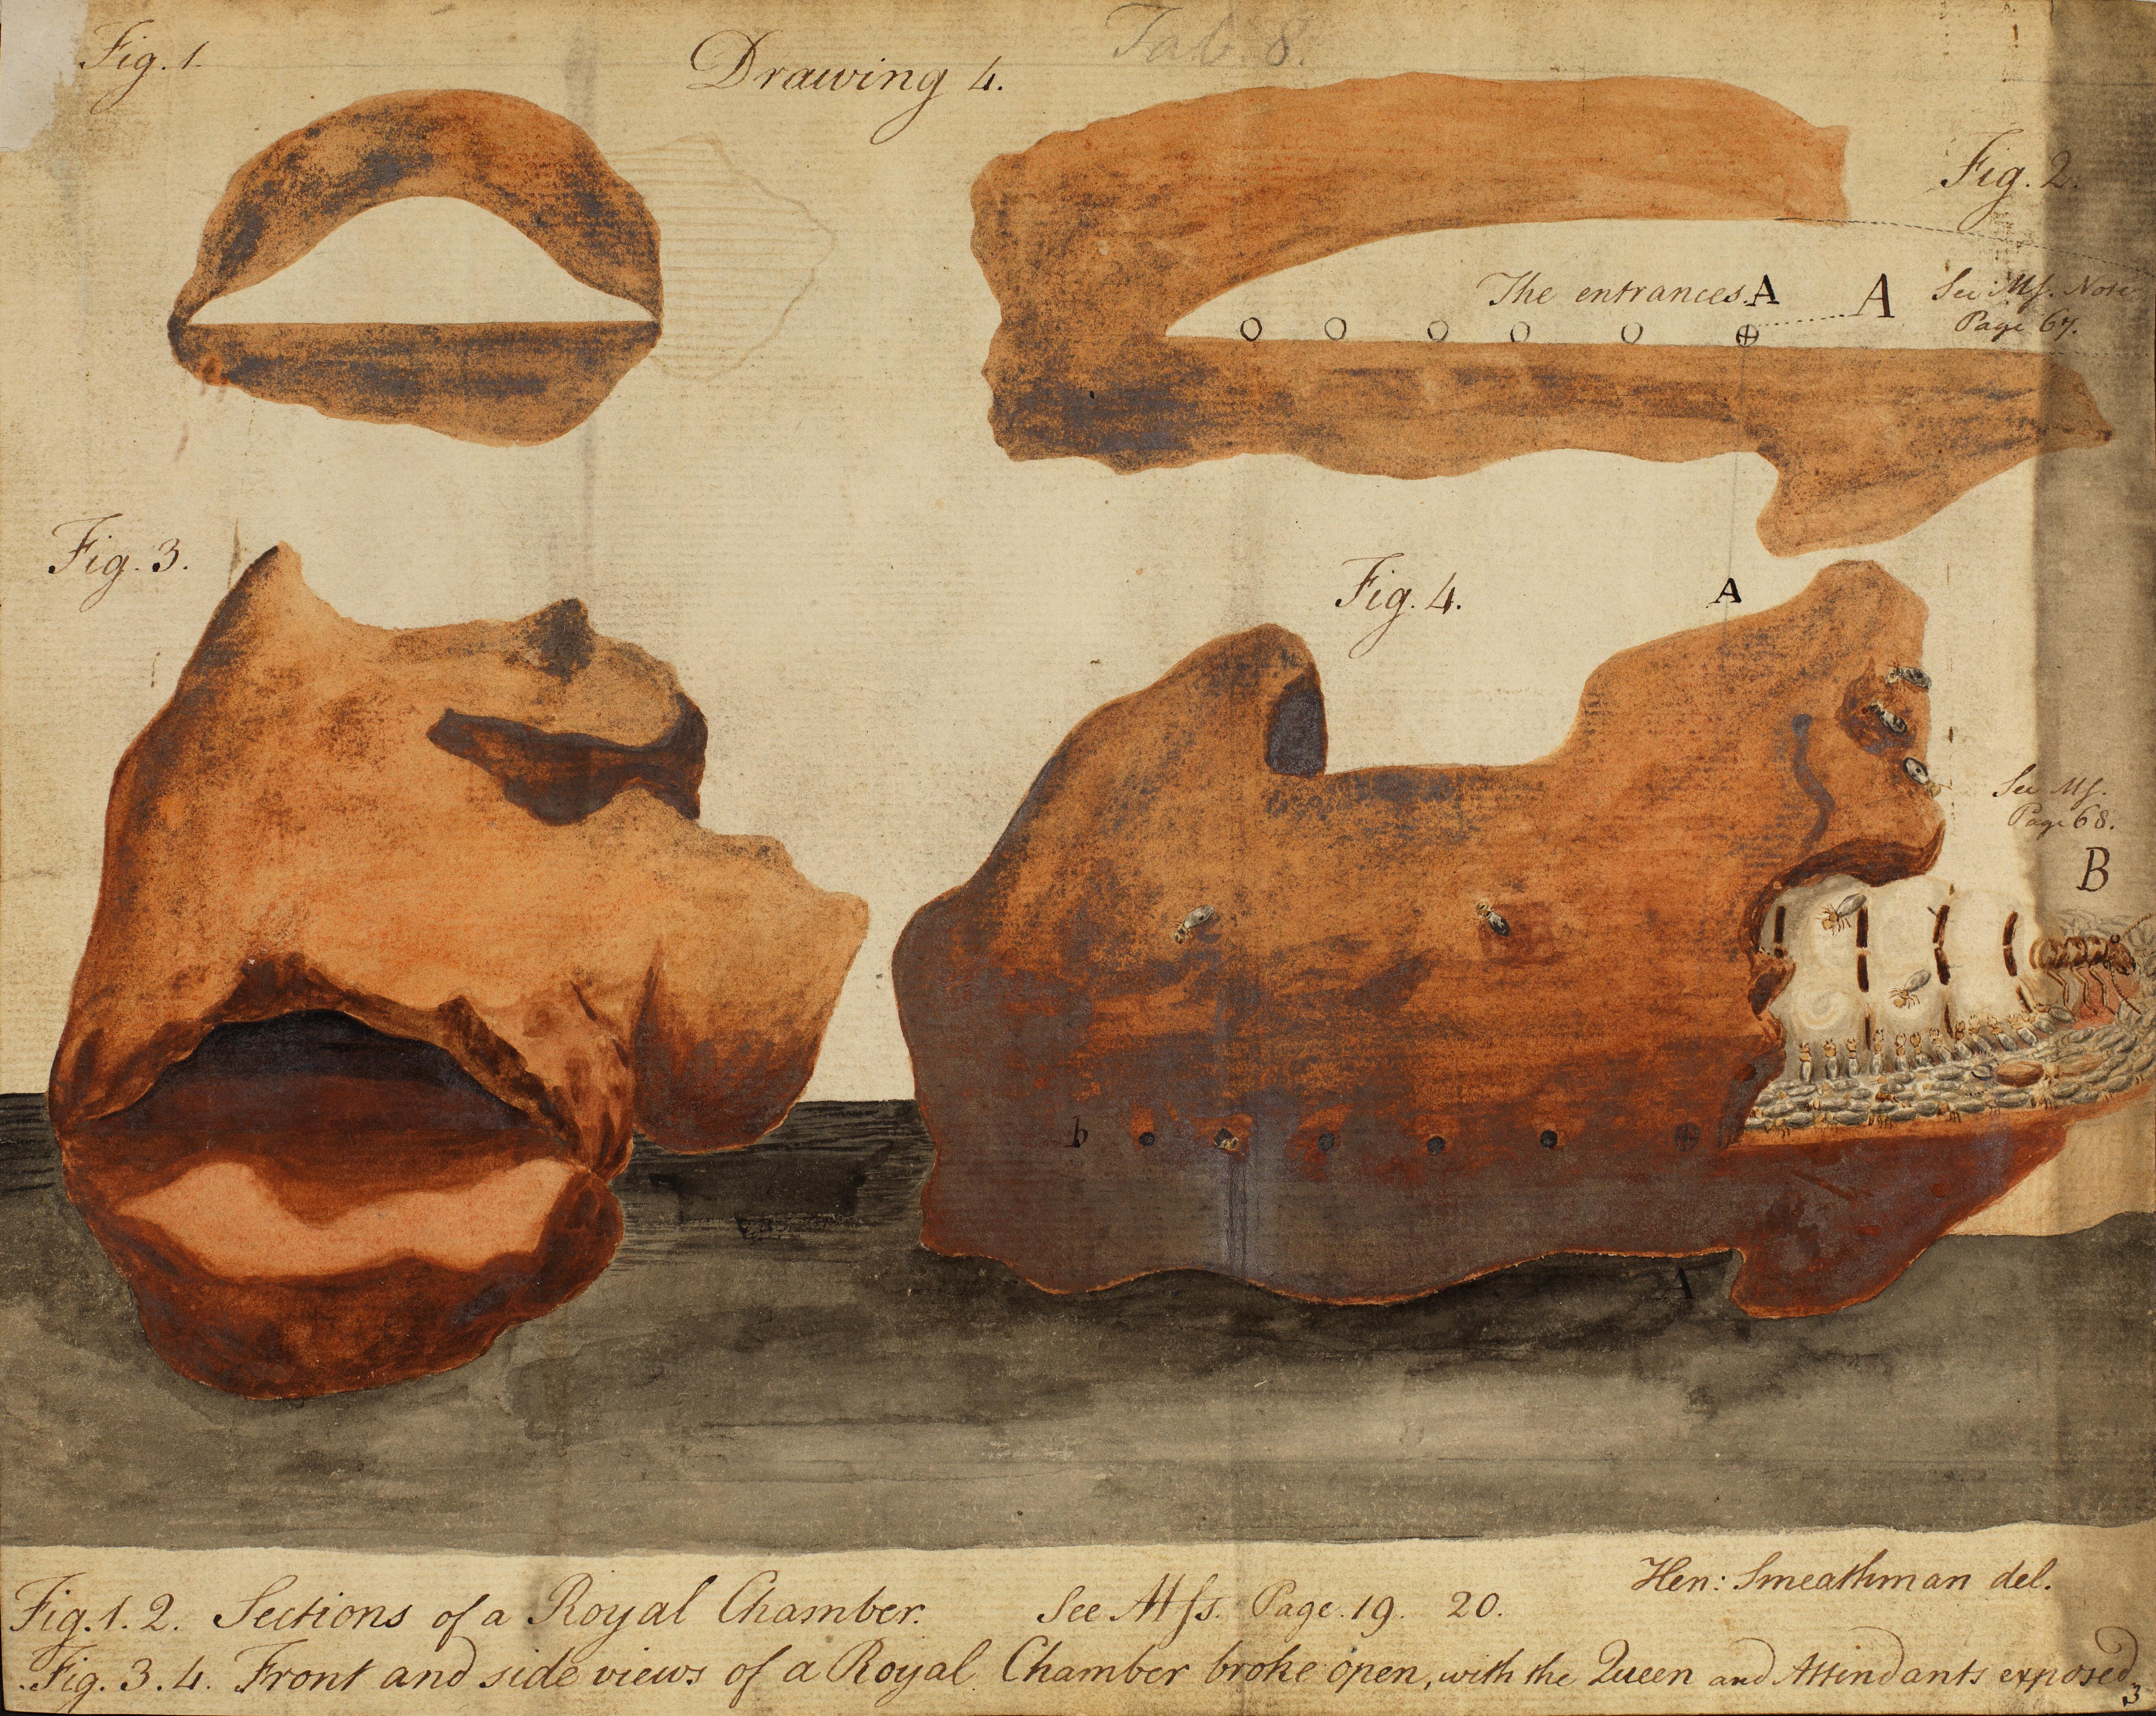 Fig. 1.
Drawing 4.
Tab. 8.
Fig. 2.
The entrances A
A
See Mſ. Note
Page 67.
Fig. 3.
Fig. 4.
A
See Mſ.
Page 68.
B
b
A
Hen: Smeathman del.
Fig. 1. 2. Sections of a Royal Chamber. See Mſs. Page. 19. 20.
Fig. 3. 4. Front and side views of a Royal Chamber broke open, with the Queen and Attendants exposed.
3